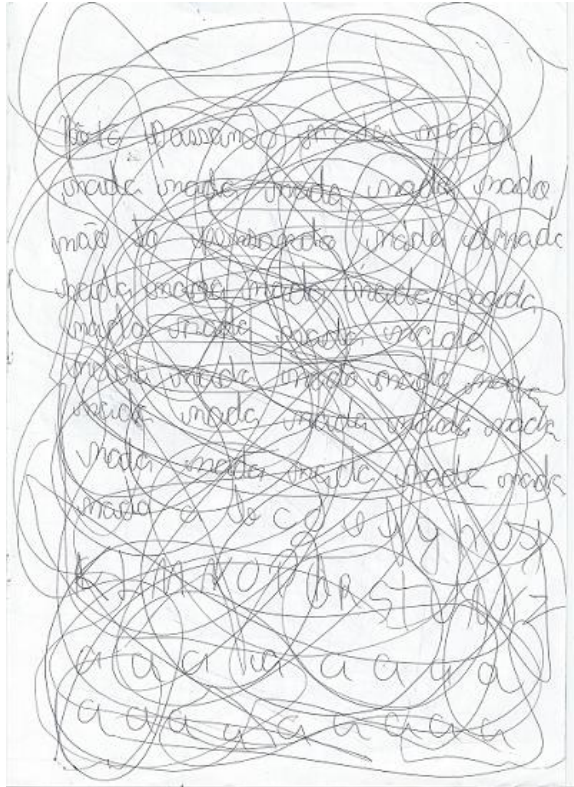 Não tô passando nada nada
nada nada nada nada nada
não tô passando nada nada
nada nada nada nada nada
nada nada nada nada
nada nada nada nada nada
nada nada nada nada nada
nada nada nada nada nada
nada a b c d e f g h i j
K L M N O P Q R S T U V X Z
a a a a a a a a
a a a a a a a a a